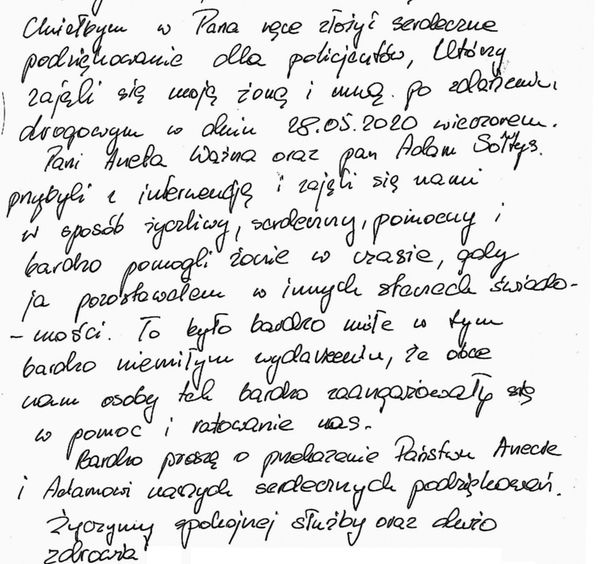 Chciałbym w Pana ręce złożyć serdeczne
podziękowanie dla policjantów, którzy
zajęli się moją żoną i mną po zdarzeniu
drogowym w dniu 28.05.2020 wieczorem.
Pani Aneta Ważna oraz pan Adam Sołtys.
przybyli z interwencją i zajęli się nami
w sposób życzliwy, serdeczny, pomocny i
bardzo pomogli żonie w czasie, gdy
ja pozostawałem w innych stanach świado-
-mości. To było bardzo miłe w tym
bardzo niemiłym wydarzeniu, że obce
nam osoby tak bardzo zaangażowały się
w pomoc i ratowanie nas.
Bardzo proszę o przekazanie Państwu Anecie
i Adamowi naszych serdecznych podziękowań.
Życzymy spokojnej służby oraz dużo
zdrowia!